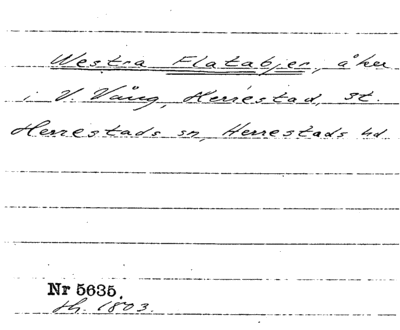 Westra Flatabjer, åker
i V. Vång, Herrestad, st.
Herrestads sn, Herrestads hd
Nr 5635.
1803.